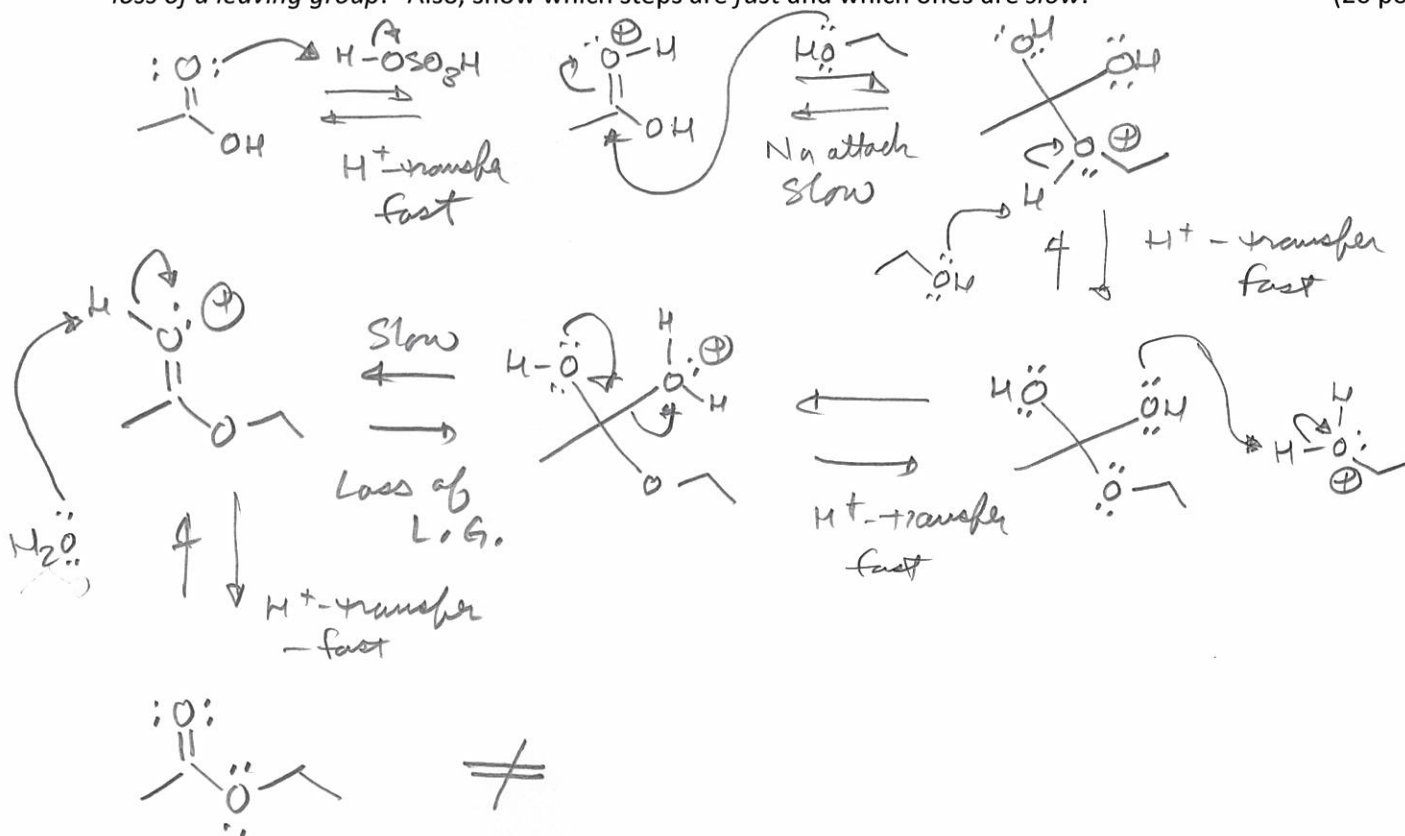 loss of a leaving group. Also, show which steps are fast and which ones are slow.
:O:
OH
H-OSO3H
H+-transfer
fast
O-H
⊕
OH
HO
Nu attack
Slow
OH
OH
O ⊕
H
OH
H+ - transfer
fast
H
O: ⊕
O
H2O
Slow
Loss of
L.G.
H-O
H
O: ⊕
H
O
H+-transfer
fast
HO
OH
O
H
H-O:
⊕
H+-transfer
- fast
:O:
O